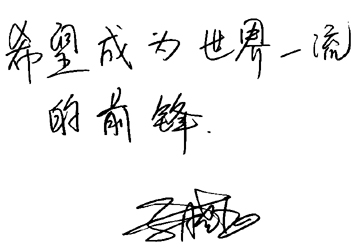 希望成为世界一流
的前锋.